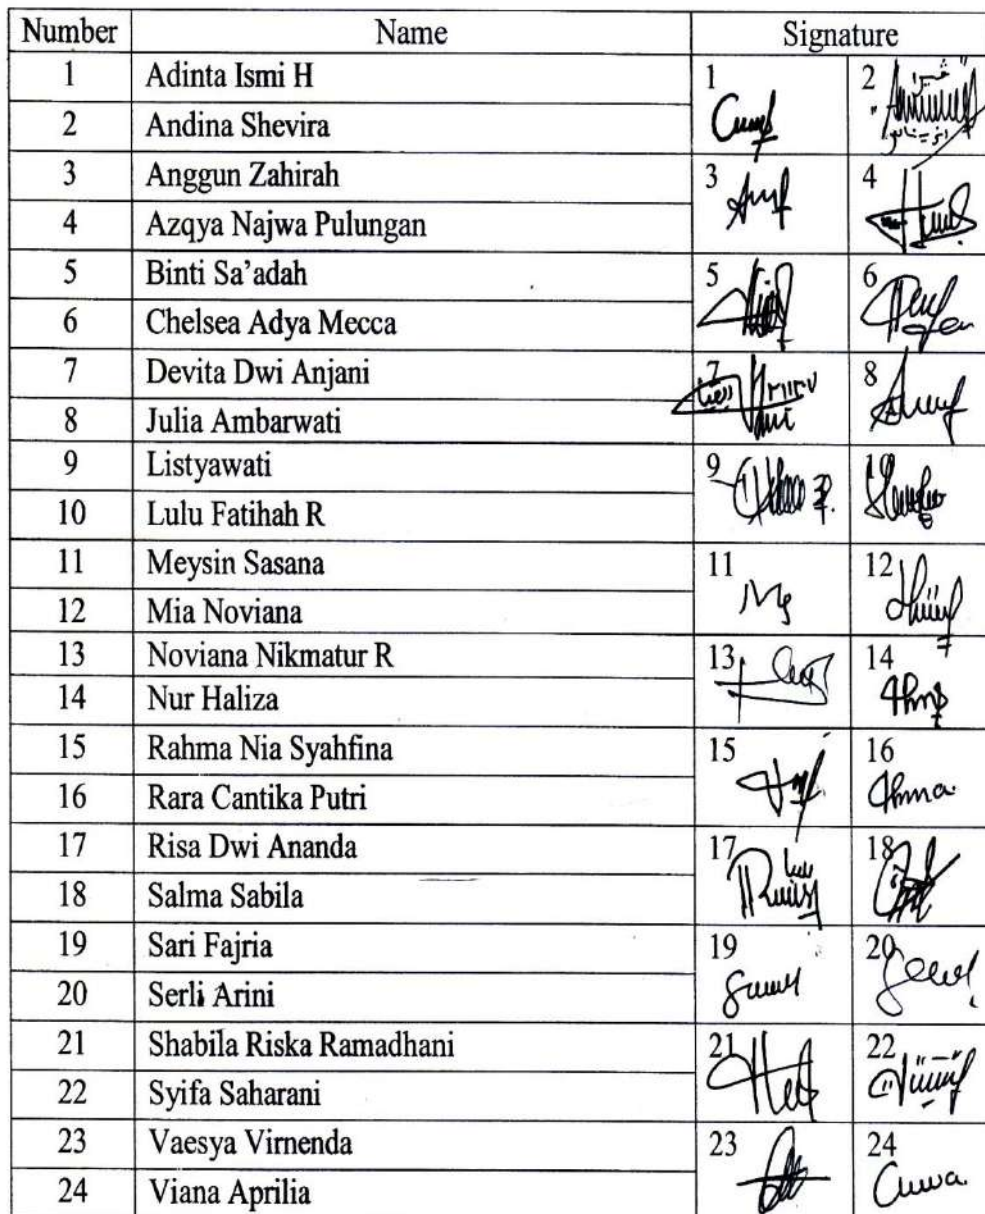 Number Name Signature
1 Adinta Ismi H 1 2
2 Andina Shevira
3 Anggun Zahirah 3 4
4 Azqya Najwa Pulungan
5 Binti Sa’adah 5 6
6 Chelsea Adya Mecca
7 Devita Dwi Anjani 7 8
8 Julia Ambarwati
9 Listyawati 9 10
10 Lulu Fatihah R
11 Meysin Sasana 11 12
12 Mia Noviana
13 Noviana Nikmatur R 13 14
14 Nur Haliza
15 Rahma Nia Syahfina 15 16
16 Rara Cantika Putri
17 Risa Dwi Ananda 17 18
18 Salma Sabila
19 Sari Fajria 19 20
20 Serli Arini
21 Shabila Riska Ramadhani 21 22
22 Syifa Saharani
23 Vaesya Virnenda 23 24
24 Viana Aprilia